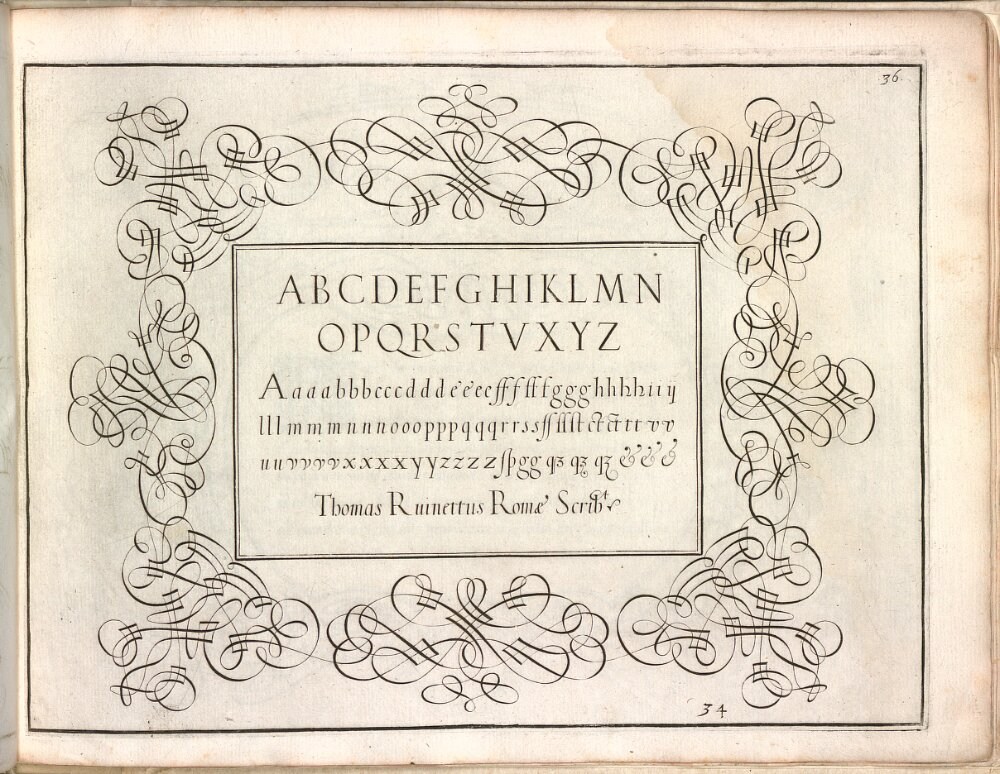 36.
ABCDEFGHIKLMN
OPQRSTVXYZ
Aaaabbbcccdddeeeeffffſſfggghhhhiiij
lllmmmnnnooopppqqqrrssſſſſſſtctctttvv
uuvvvvxxxxyyzzzzſpggqꝫqꝫqꝫ&&&
Thomas Ruinettus Romæ Scribt
34